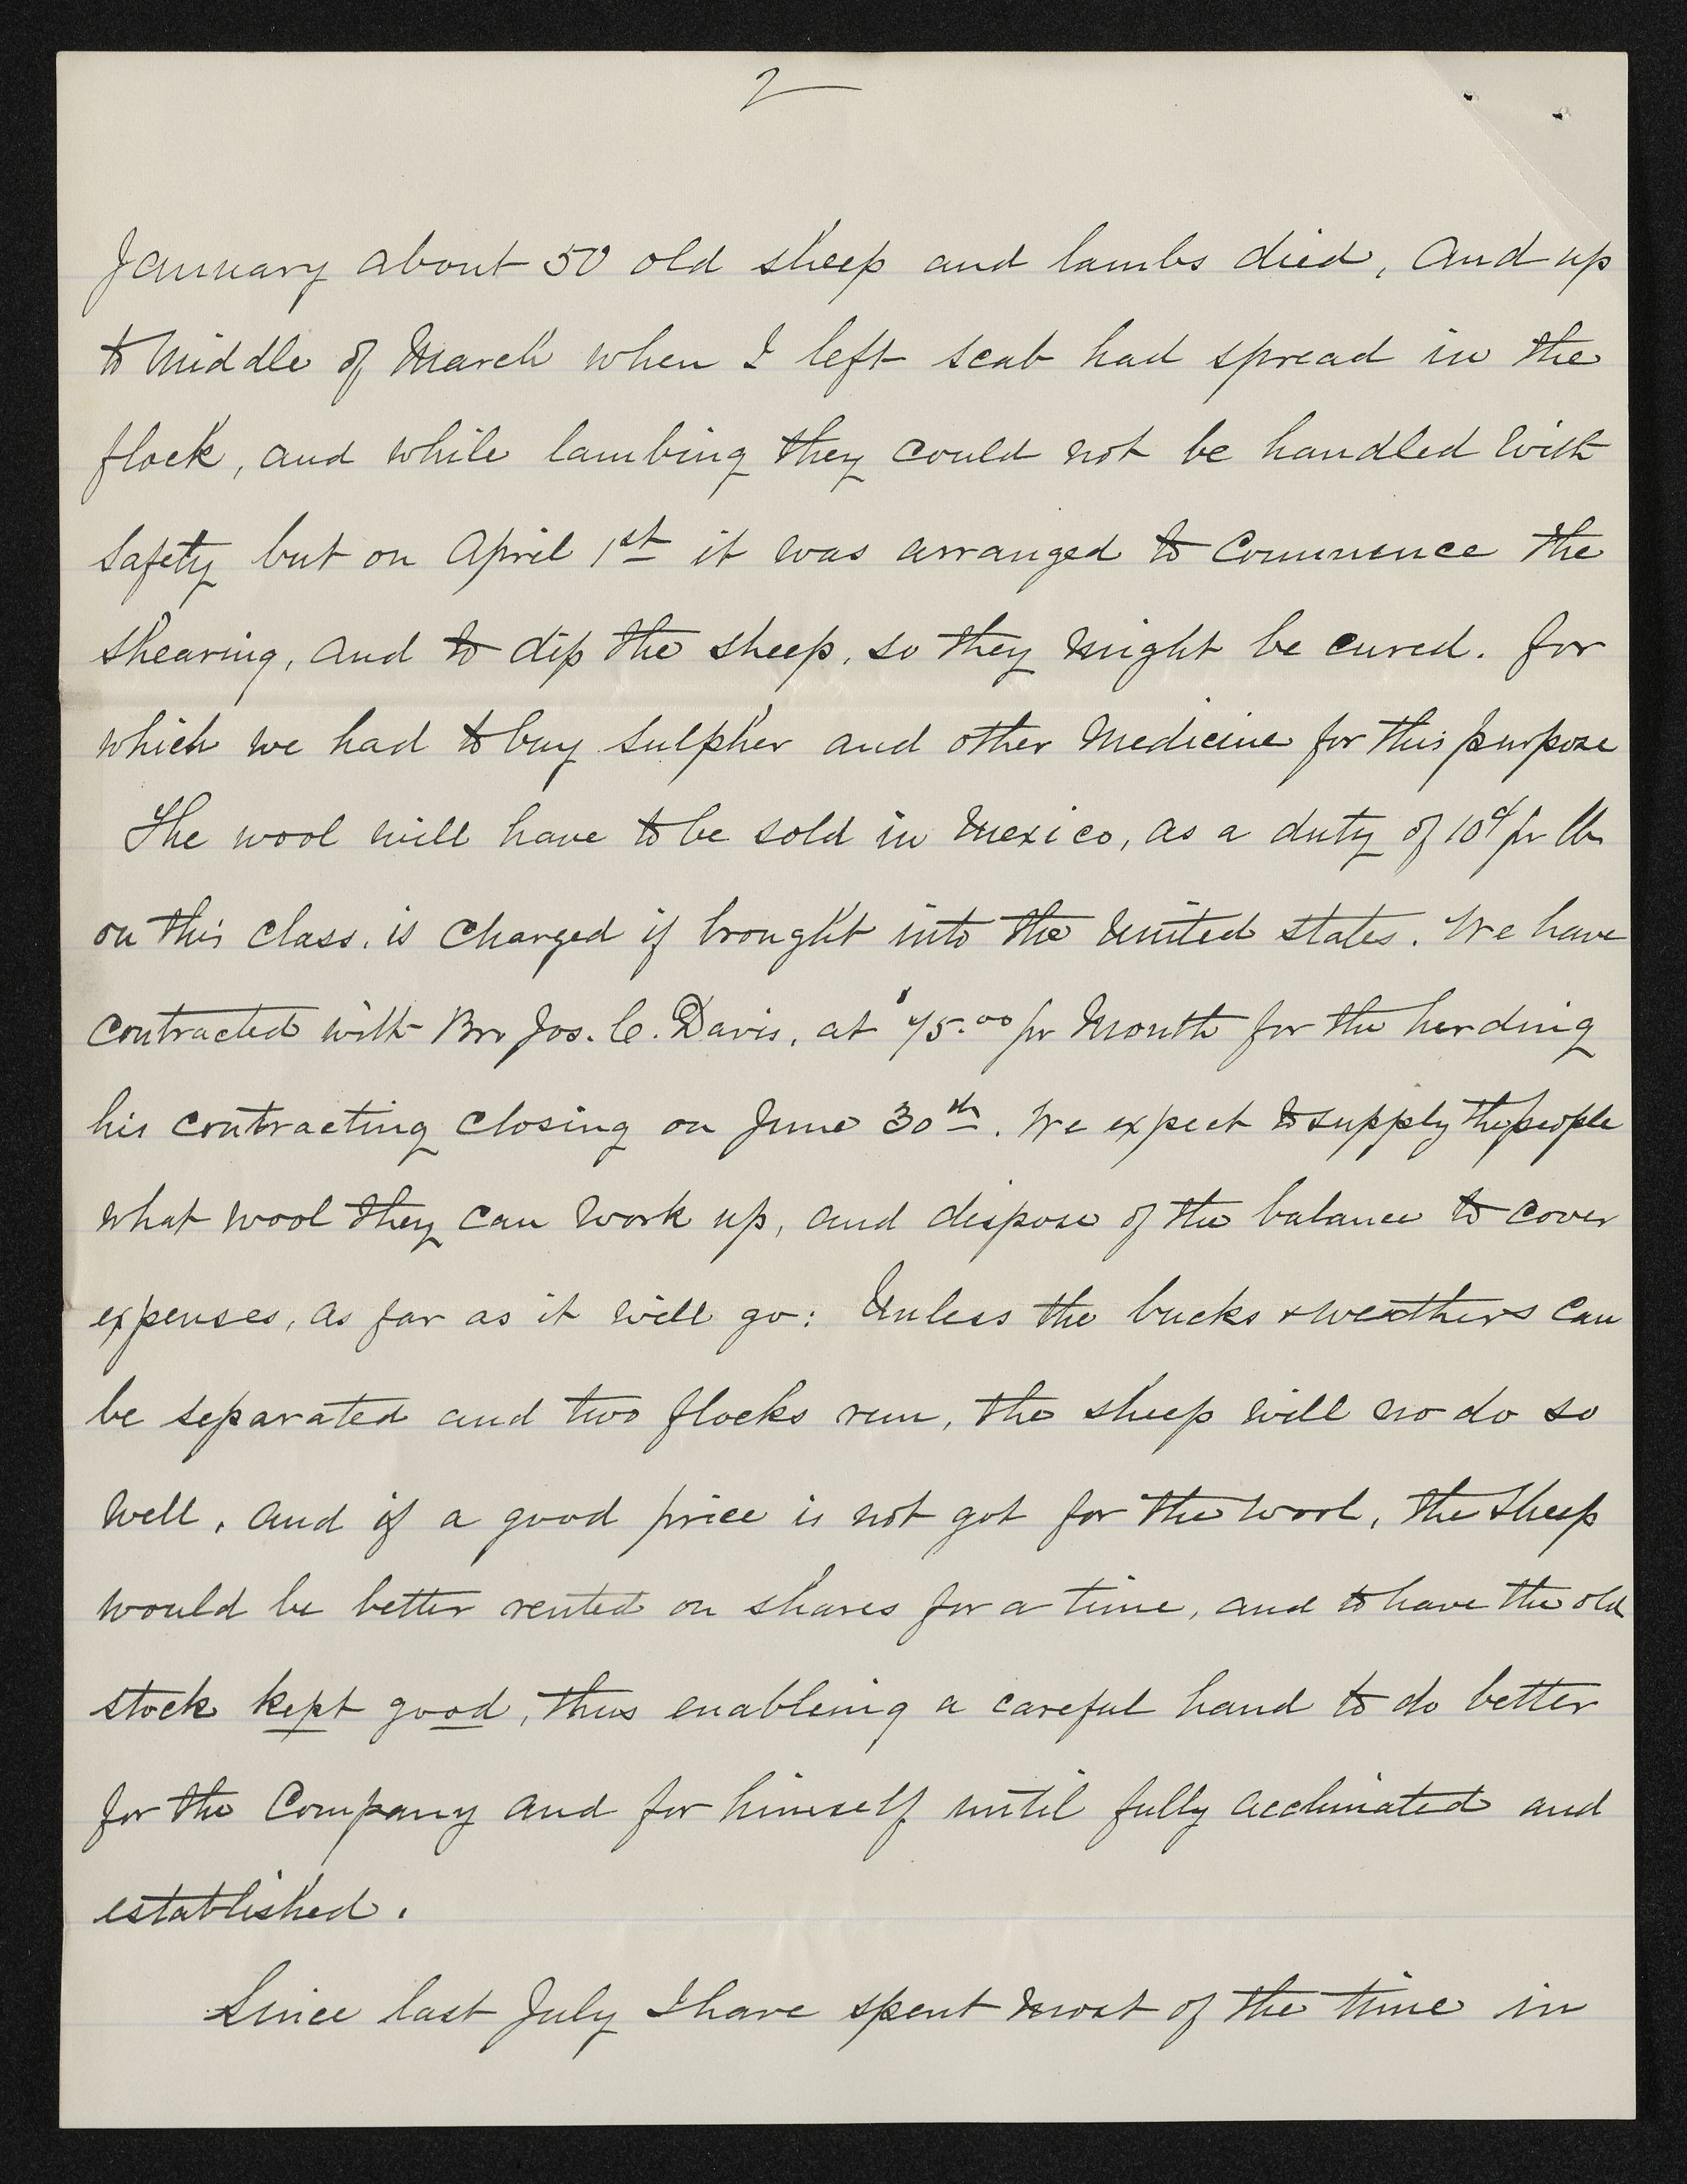 2
January about 50 old sheep and lambs died, and up
to middle of March when I left scab had spread in the
flock, and while lambing they could not be handled with
safety but on April 1st it was arranged to commence the
shearing, and to dip the sheep, so they might be cured. for
which we had to buy sulpher and other medicine for this purpose
The wool will have to be sold in Mexico, as a duty of 10¢ pr lb
on this class, is charged if brought into the United States. We have
contracted with Bro Jos. C. Davis, at $45.00 pr Month for the herding
his contracting closing on June 30th. We expect to supply the people
what wool they can work up, and dispose of the balance to cover
expenses, as far as it will go: Unless the bucks & weathers can
be separated and two flocks run, the sheep will no do so
well, and if a good price is not got for the wool, the sheep
would be better rented on shares for a time, and to have the old
stock kept good, thus enableing a careful hand to do better
for the Company and for himself until fully acclimated and
established.
Since last July I have spent most of the time in